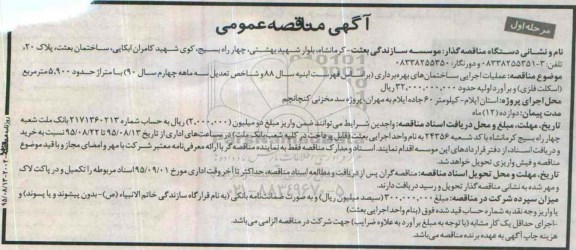 مرحله اول
آگهی مناقصه عمومی
نام و نشانی دستگاه مناقصه گذار: موسسه سازندگی بعثت - کرمانشاه، بلوار شهید بهشتی، چهار راه بسیج، کوی شهید کامران ابکایی، ساختمان بعثت، پلاک ۲۰،
تلفن: ۳-۰۸۳۳۸۲۵۵۳۵۱ و دورنگار: ۰۸۳۳۸۲۵۵۳۵۰
موضوع مناقصه: عملیات اجرایی ساختمان های بهره برداری (بر اساس فهرست ابنیه سال ۸۸ و شاخص تعدیل سه ماهه چهارم سال ۹۰) با متراژ حدود ۵.۹۰۰ مترمربع
(اسکلت فلزی) و برآورد اولیه حدود ۳۲.۰۰۰.۰۰۰.۰۰۰ ریال
محل اجرای پروژه: استان ایلام- کیلومتر ۶۰ جاده ایلام به مهران، پروژه سد مخزنی کنجانچم
مدت پیمان: دوازده (۱۲) ماه
تاریخ، مهلت، مبلغ و محل دریافت اسناد مناقصه: واجدین شرایط می توانند ضمن واریز مبلغ دو میلیون (۲.۰۰۰.۰۰۰) ریال به حساب شماره ۲۱۷۱۳۶۰۲۱۳ بانک ملت شعبه
چهار راه بسیج کرمانشاه با کد شعبه ۲۴۳۵۶ به نام واحد اجرایی بعثت (قابل پرداخت در کلیه شعب بانک ملت) در ساعت های اداری از تاریخ ۹۵/۰۸/۱۳ تا ۹۵/۰۸/۲۲ نسبت به خرید
و دریافت اسناد، از دفتر قراردادهای این موسسه اقدام نمایند. اسناد و مدارک مناقصه فقط به نماینده مناقصه گر با ارائه معرفی نامه معتبر شرکت با مهر و امضای مجاز و با قید موضوع
مناقصه و فیش واریزی تحویل خواهد شد.
تاریخ، مهلت و محل تحویل اسناد مناقصه: مناقصه گران پس از دریافت و مطالعه اسناد مناقصه، حداکثر تا آخر وقت اداری مورخ ۹۵/۰۹/۰۱ اسناد مربوطه را تکمیل و در پاکت لاک
و مهر شده به نشانی مناقصه گذار تحویل و رسید دریافت دارند.
میزان سپرده شرکت در مناقصه: مبلغ ۳۰۰.۰۰۰.۰۰۰ (سیصد میلیون ریال) و به صورت ضمانت نامه بانکی (به نام قرارگاه سازندگی خاتم الانبیاء (ص)-بدون پیشوند و یا پسوند) و
یا واریز وجه نقد به شماره حساب قید شده فوق (بنام واحد اجرایی بعثت)
-اجرای حداقل یک کار مشابه (با توجه به مبلغ برآورد به علاوه ضرایب) جهت شرکت در مناقصه الزامی می باشد.
هزینه چاپ آگهی به عهده برنده مناقصه می باشد.